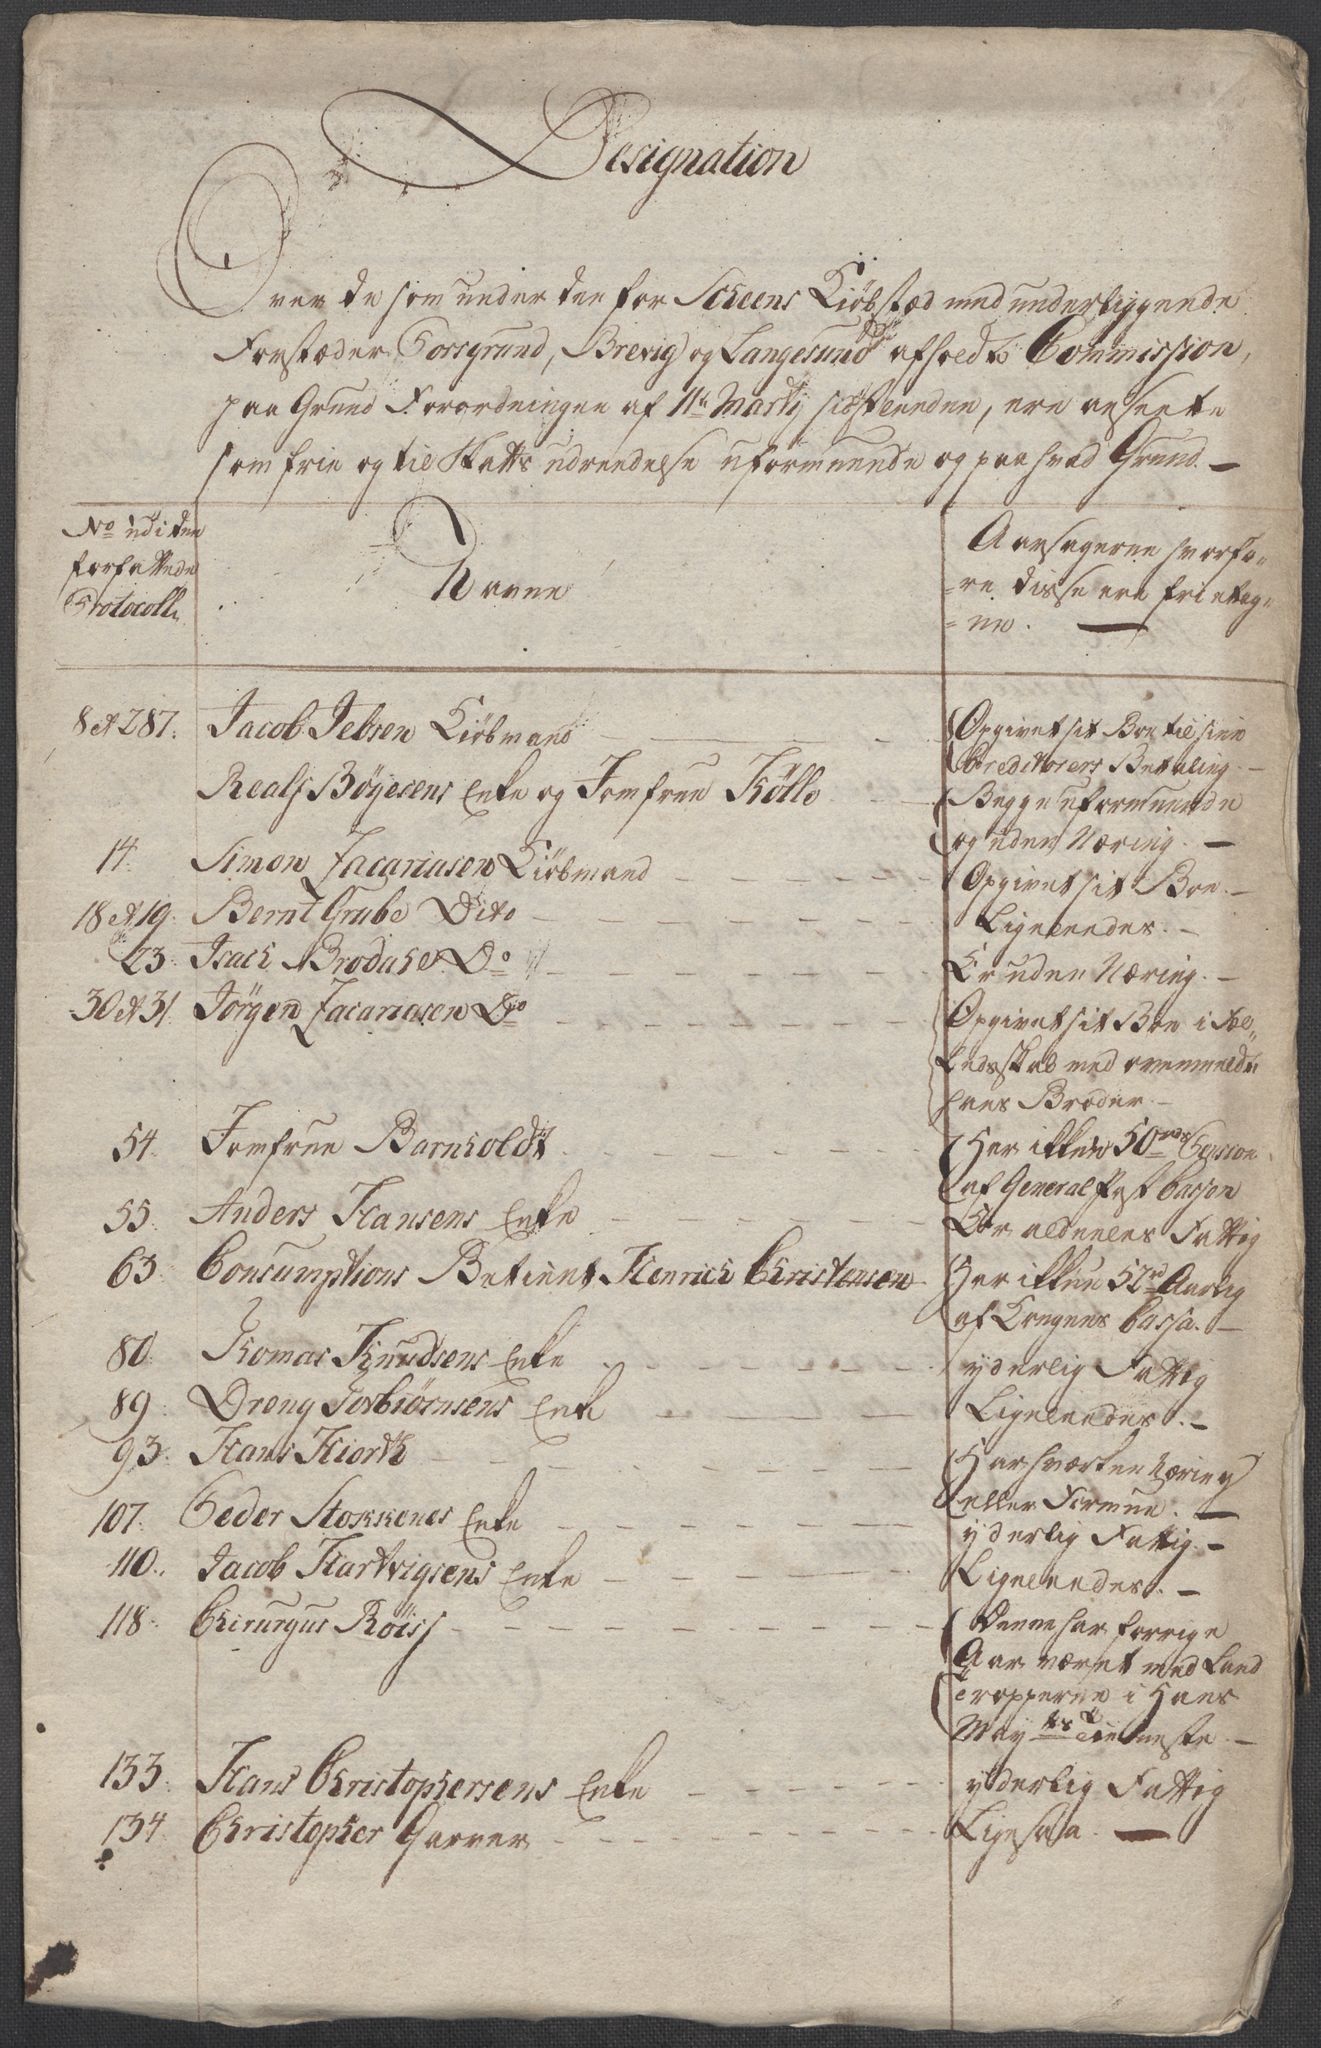 Designation
Over de som under den for Scheens Kiöbstæd med underliggende
Forstæder Porsgrund, Brevig og Langesund afholdte Commission,
paa Grund Forordningen af 11te Martij sidstleeden, ere ansette
som frie og til Skatts udreedelse uformuende og paa hvad Grund. —
No udi den
forfattede
Protocoll
Navne
Aarsagerne hvorfo-
-re disse ere fri ettag-
-ne. —
8 et 287. Jacob Jebsen Kiöbmand — Opgivet sit Boe til sine
Creditorers Betaling. —
Realf Böyesens Enke og Jomfrue Kölle — Begge uformuende
og uden Næring. —
14. Simon Zacariasen Kiöbmand — Opgivet sit Boe. —
18 et 19. Bernt Grube Dito — Ligeleedes. —
23. Isach Brodahl Do — Er uden Næring. —
30 et 31. Jörgen Zacariasen Do — Opgivet sit Boe i Fæl-
ledsskab med ovenmeldte
hans Broder. —
54. Jomfrue Barnholdt — Har ikkun 50 rd Pension
af General Post Cassen
55. Anders Hansens Enke — Er aldeeles Fattig
63. Consumptions Betient Henrich Christensen — Har ikkun 52 rd Aarlig
af Kongens Cassa. —
80. Thomas Knudsens Enke — yderlig Fattig
89. Dreng Torbiörnsens Enke — Ligeleedes. —
93. Hans Hiorth — Har hværken Næring
eller Formue. —
107. Peder Stokkenes Enke — yderlig Fattig. —
110. Jacob Hartvigsens Enke — Ligeleedes. —
118. Chirurgus Röiss — Denne har forrige
Aar været med Land
Tropperne i Hans
Mayts Tieneste. —
133. Hans Christophersens Enke — yderlig Fattig
134. Christopher Garver — Ligesaa. —